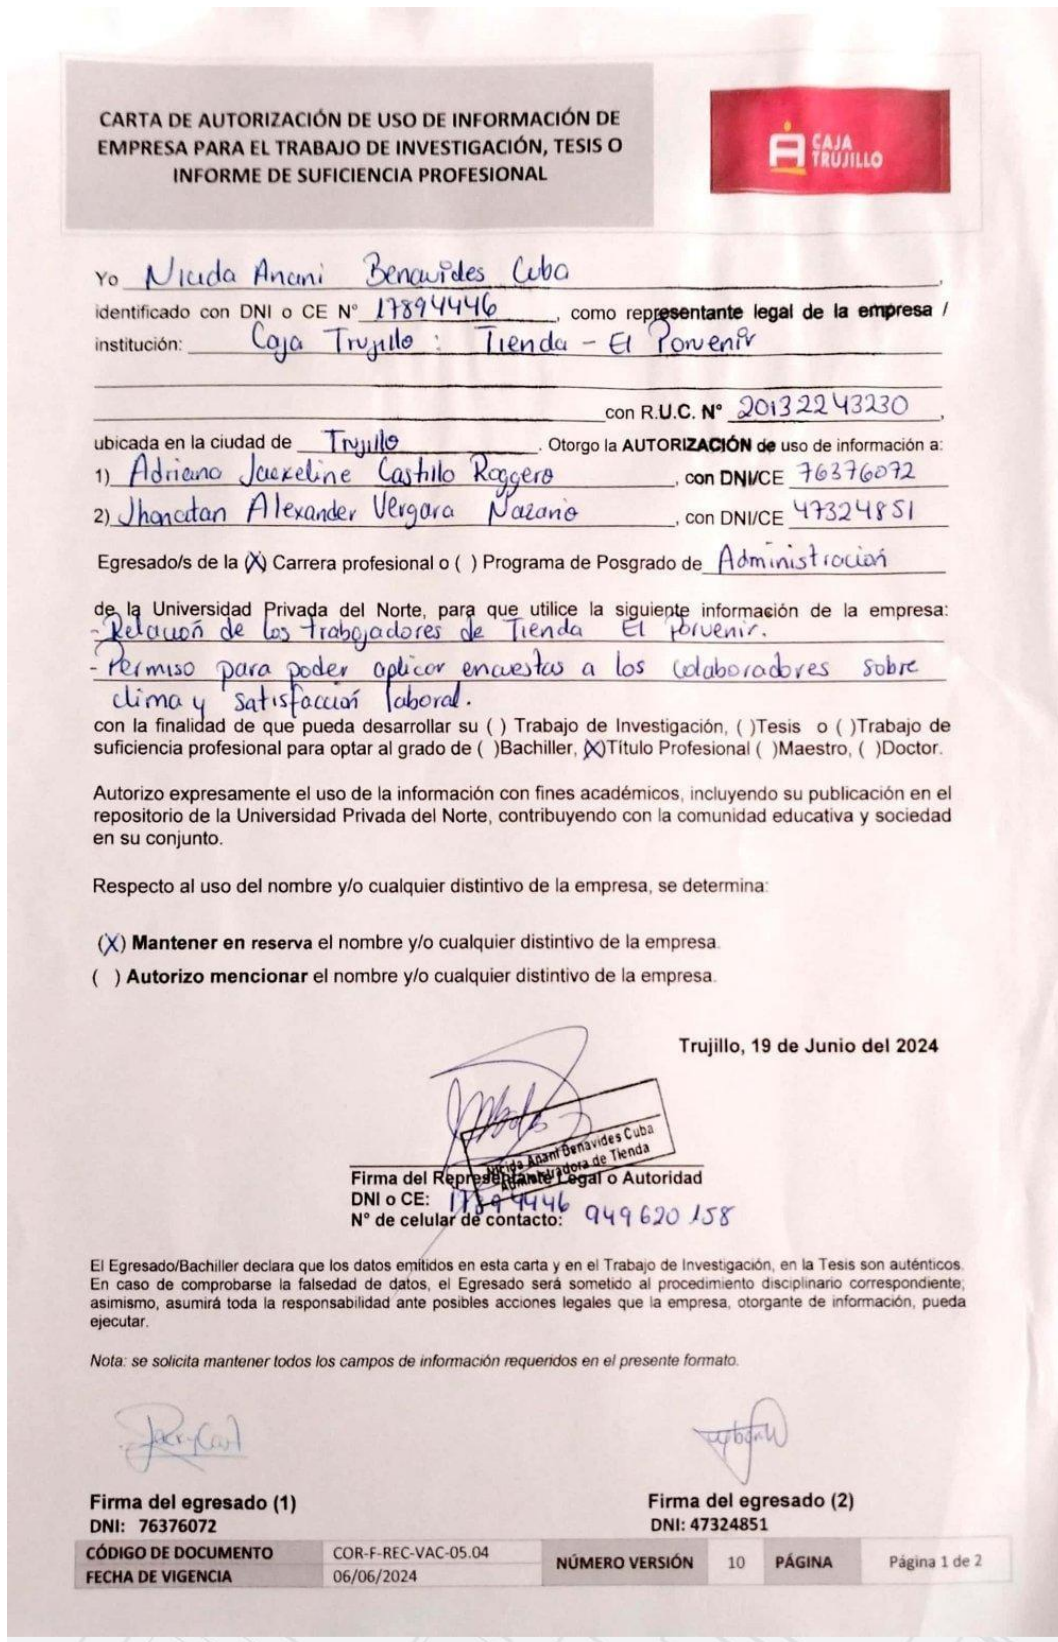 CARTA DE AUTORIZACIÓN DE USO DE INFORMACIÓN DE
EMPRESA PARA EL TRABAJO DE INVESTIGACIÓN, TESIS O
INFORME DE SUFICIENCIA PROFESIONAL
CAJA
TRUJILLO
Yo Nicida Anani Benavides Cuba,
identificado con DNI o CE N° 17894446, como representante legal de la empresa /
institución: Caja Trujillo : Tienda - El Porvenir
con R.U.C. N° 20132243230,
ubicada en la ciudad de Trujillo. Otorgo la AUTORIZACIÓN de uso de información a:
1) Adriana Jackeline Castillo Roggero, con DNI/CE 76376072
2) Jhonatan Alexander Vergara Nazario, con DNI/CE 47324851
Egresado/s de la (X) Carrera profesional o ( ) Programa de Posgrado de Administración
de la Universidad Privada del Norte, para que utilice la siguiente información de la empresa:
- Relación de los trabajadores de Tienda El Porvenir.
- Permiso para poder aplicar encuestas a los colaboradores sobre
clima y satisfacción laboral.
con la finalidad de que pueda desarrollar su ( ) Trabajo de Investigación, ( )Tesis o ( )Trabajo de
suficiencia profesional para optar al grado de ( )Bachiller, (X)Título Profesional ( )Maestro, ( )Doctor.
Autorizo expresamente el uso de la información con fines académicos, incluyendo su publicación en el
repositorio de la Universidad Privada del Norte, contribuyendo con la comunidad educativa y sociedad
en su conjunto.
Respecto al uso del nombre y/o cualquier distintivo de la empresa, se determina:
(X) Mantener en reserva el nombre y/o cualquier distintivo de la empresa.
( ) Autorizo mencionar el nombre y/o cualquier distintivo de la empresa.
Trujillo, 19 de Junio del 2024
Nicida Anani Benavides Cuba
Administradora de Tienda
Firma del Representante Legal o Autoridad
DNI o CE: 17894446
N° de celular de contacto: 949620158
El Egresado/Bachiller declara que los datos emitidos en esta carta y en el Trabajo de Investigación, en la Tesis son auténticos.
En caso de comprobarse la falsedad de datos, el Egresado será sometido al procedimiento disciplinario correspondiente;
asimismo, asumirá toda la responsabilidad ante posibles acciones legales que la empresa, otorgante de información, pueda
ejecutar.
Nota: se solicita mantener todos los campos de información requeridos en el presente formato.
Firma del egresado (1)
DNI: 76376072
Firma del egresado (2)
DNI: 47324851
CÓDIGO DE DOCUMENTO COR-F-REC-VAC-05.04 NÚMERO VERSIÓN 10 PÁGINA Página 1 de 2
FECHA DE VIGENCIA 06/06/2024